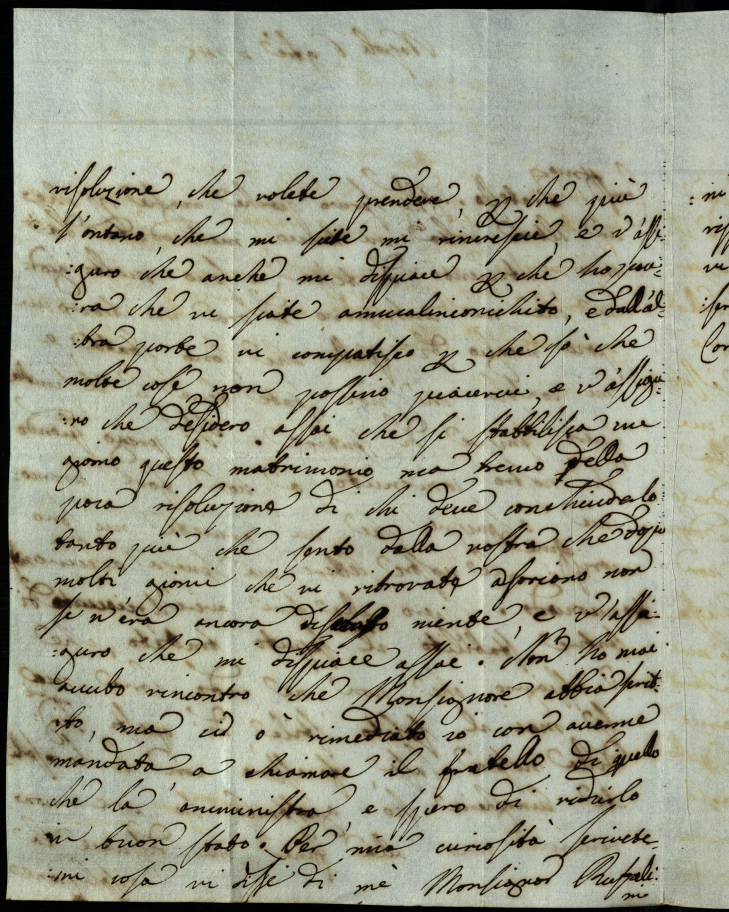 risoluzione, che volete prendere, p che più
lontano, che mi siete mi rincresce, e v'assi:
:guro che anche mi dispiace p che ho pau:
:ra che vi siate amucalinconichito, e dall'al:
:tra parte vi compatisco p che sò che
molte cose non possino piacervi, e v'assigu:
:ro che desidero assai che si stabbilisca un
giorno questo matrimonio ma tremo della
poca risoluzione di chi deve conchiuderlo
tanto più che sento dalla vostra che dopo
molti giorni che vi ritrovate a non
si n'era ancora niente, e v'assi:
:guro che mi dispiace assai. Non ho mai
avuto rincontro che Monsignore abbia scrit:
:to, ma ciò ò rimediato io con averne
mandata a chiamare il fratello di quello
che la amministra, e spero di ridurlo
in buon stato. Per mia curiosità scrivete:
:mi cosa vi disse di mè Monsignor Ruffali:
ni